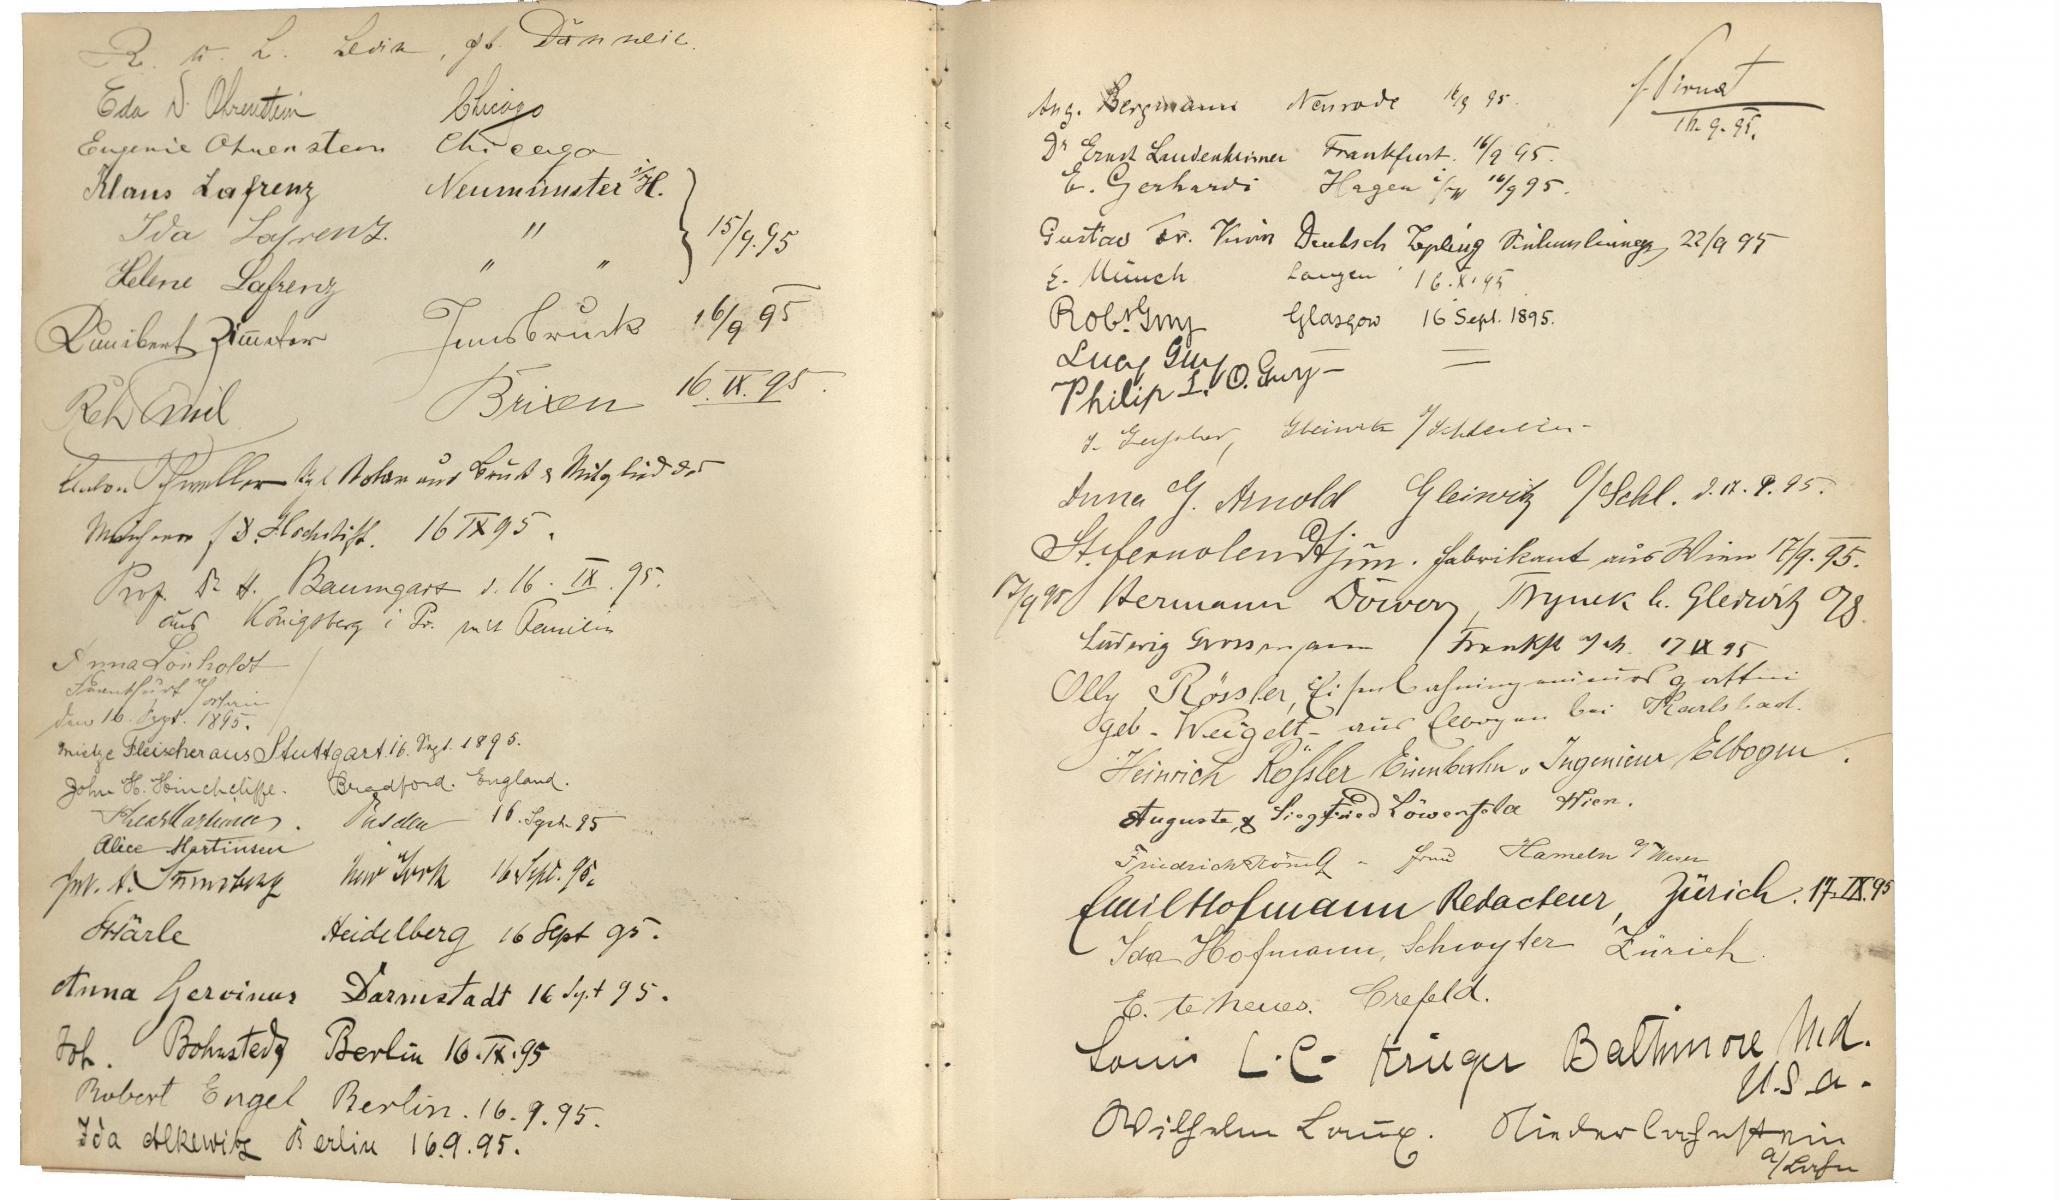 R. u. L. Levin,
Eda D. Ohrenstein Chicago
Eugenie Ohrenstein Chicago
Klaus Lafrenz Neumünster i/H.
Ida Lafrenz. " 15/9.95
Helene Lafrenz " "
Zimeter Innsbruck 16/9 95
Emil Brixen 16. IX. 95.
Anton Schweller kgl Notar aus Bruck & Mitglied des
f. D. Hochstift. 16 IX 95.
Prof. Dr H. Baumgart d. 16. IX. 95.
aus Königsberg i Pr. mit Familie
Anna Lönholdt
Frankfurt a/Main
den 16. Sept. 1895.
Mietze Fleischer aus Stuttgart. 16. Sept. 1895.
John H. Hinchcliffe. Bradford. England.
Martinsen. Dresden 16. Sept. 95
Alice Martinsen
New York 16 Sept. 95.
Wärle Heidelberg 16 Sept 95.
Anna Gervinus Darmstadt 16 Sept 95.
Joh. Bohnstedt Berlin 16. IX. 95
Robert Engel Berlin. 16. 9. 95.
Ida Alkewitz Berlin 16.9.95.
Pirnat
16. 9. 95.
Aug. Bergmann Neurode 16/9 95.
Dr Ernst Laudenheimer Frankfurt. 16/9 95.
E. Gerhardi Hagen i/W 16/9 95.
Gustav Fr. Deutsch 22/9 95
E. Münch Langen 16.X.95
Robt Guy Glasgow 16 Sept. 1895.
Lucy Guy =
Philip L. O. Guy —
Gleiwitz
Anna G. Arnold Gleiwitz O/Schl. d. 17. 9. 95.
jun. Fabrikant aus Wien 17/9. 95.
17/9 95 Hermann Trynek b. Gleiwitz O/S.
Ludwig Grossmann Frankft a/M. 17 IX 95
Olly Rössler, Eisenbahningenieursgattin
geb. Weigelt aus Elbogen bei Karlsbad.
Heinrich Rößler Eisenbahn-Ingenieur Elbogen.
Auguste & Siegfried Löwenfeld Wien.
Friedrich König Frau Hameln a/Weser
Emil Hofmann Redacteur, Zürich. 17. IX. 95
Ida Hofmann, Schwyter Zürich.
E. te Neues. Crefeld.
Louis L. C. Krieger Baltimore Md.
U.S.A.
Wilhelm Laux. Niederlahnstein
a/Lahn